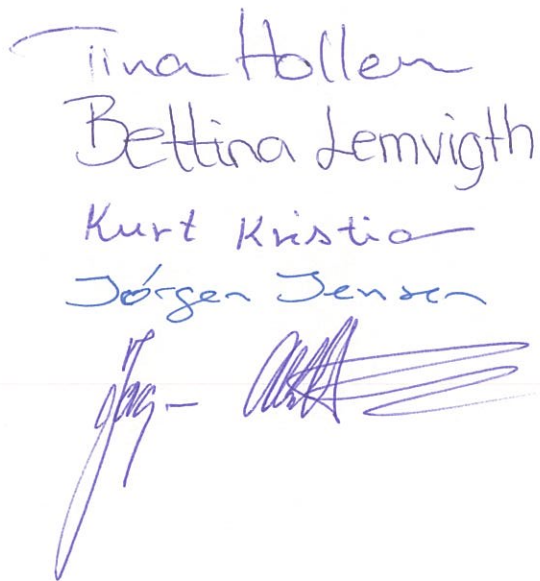 Tina Hollen
Bettina Lemvigth
Kurt Kristia
Jórgen Jensen